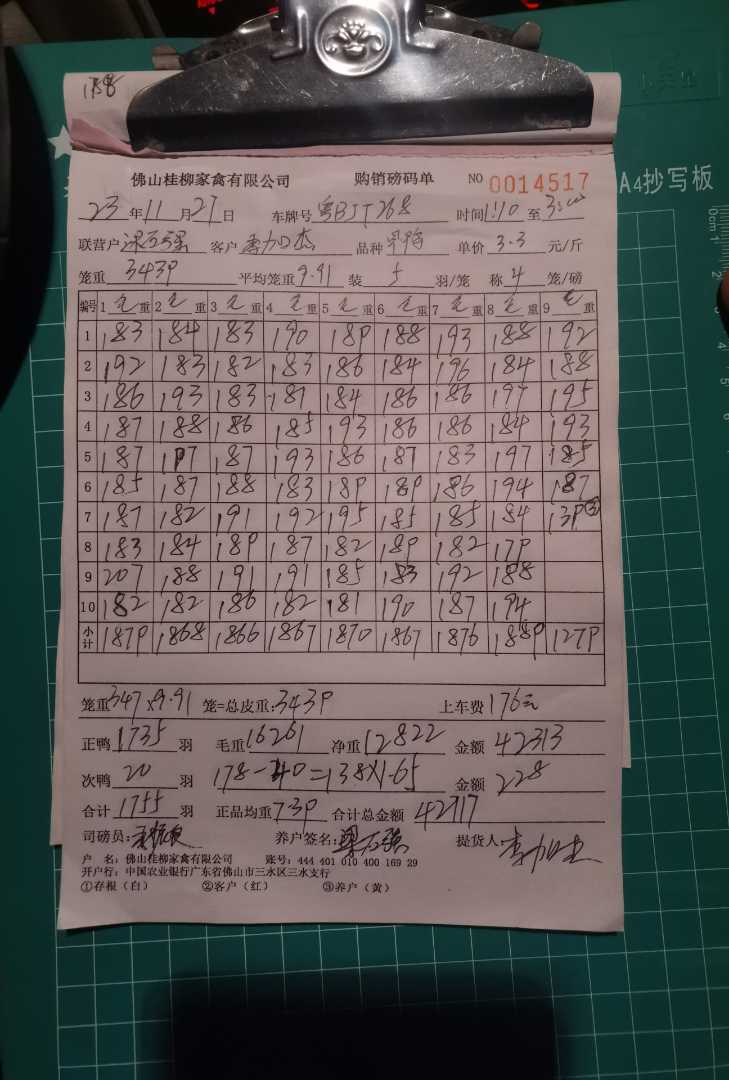 158
佛山桂柳家禽有限公司 购销磅码单 NO 0014517
A4抄写板
23年11月27日 车牌号粤BJT268 时间1:10至
联营户 客户 品种 单价3.3元/斤
笼重3439 平均笼重9.91 装5羽/笼 称4笼/磅
编号 1毛重 2毛重 3毛重 4毛重 5毛重 6毛重 7毛重 8毛重 9毛重
1 183 184 183 190 189 188 193 188 192
2 192 183 182 183 186 184 196 184 188
3 186 193 183 187 184 186 186 197 195
4 187 188 186 185 193 186 186 184 193
5 187 197 187 193 186 187 183 197 185
6 185 187 188 183 189 189 186 194 187
7 187 182 191 192 195 185 185 184 139③
8 183 184 189 187 182 189 182 179
9 207 188 191 191 185 183 192 188
10 182 182 186 182 181 190 187 194
小计 1879 1868 1866 1867 1870 1867 1876 1889 1279
笼重347×9.91 笼=总皮重:3439 上车费176元
正鸭1735羽 毛重16261 净重12822 金额42313
次鸭20羽 178-40=138×1.65 金额228
合计1755羽 正品均重7.39 合计总金额42717
司磅员: 养户签名: 提货人:
户 名:佛山桂柳家禽有限公司 账号:444 401 010 400 169 29
开户行:中国农业银行广东省佛山市三水区三水支行
①存根(白) ②客户(红) ③养户(黄)
0cm 1
2
3
4
5
6